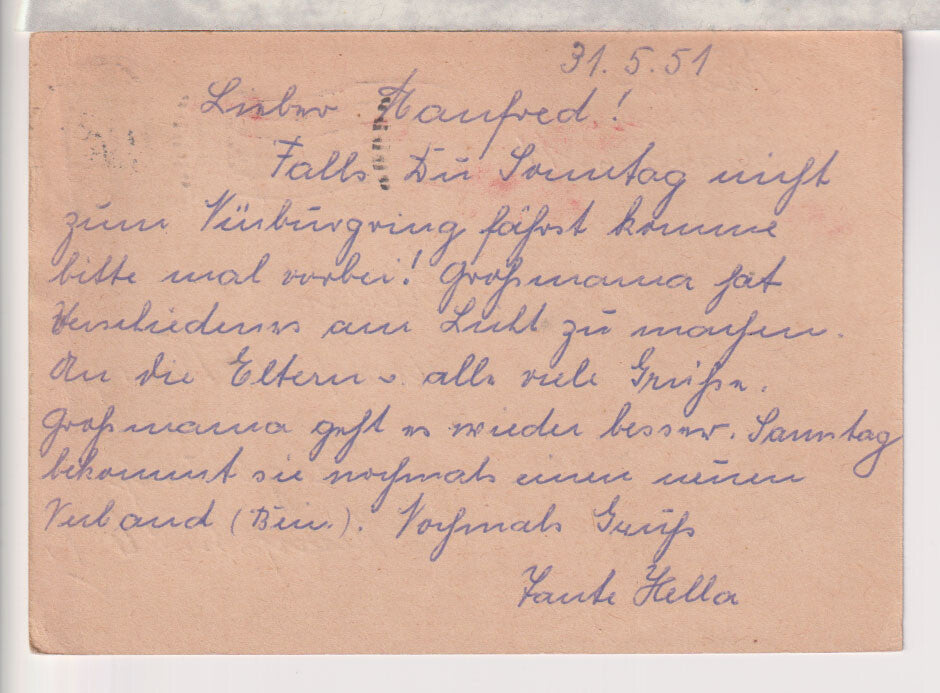 31.5.51
Lieber Manfred!
Falls Du Sonntag nicht
zum Nürburgring fährst komme
bitte mal vorbei! Großmama hat
Verschiedenes am Licht zu machen.
An die Eltern u. alle viele Grüße.
Großmama geht es wieder besser. Samstag
bekommt sie nochmals einen neuen
Verband (Bein). Nochmals Gruß
Tante Hella